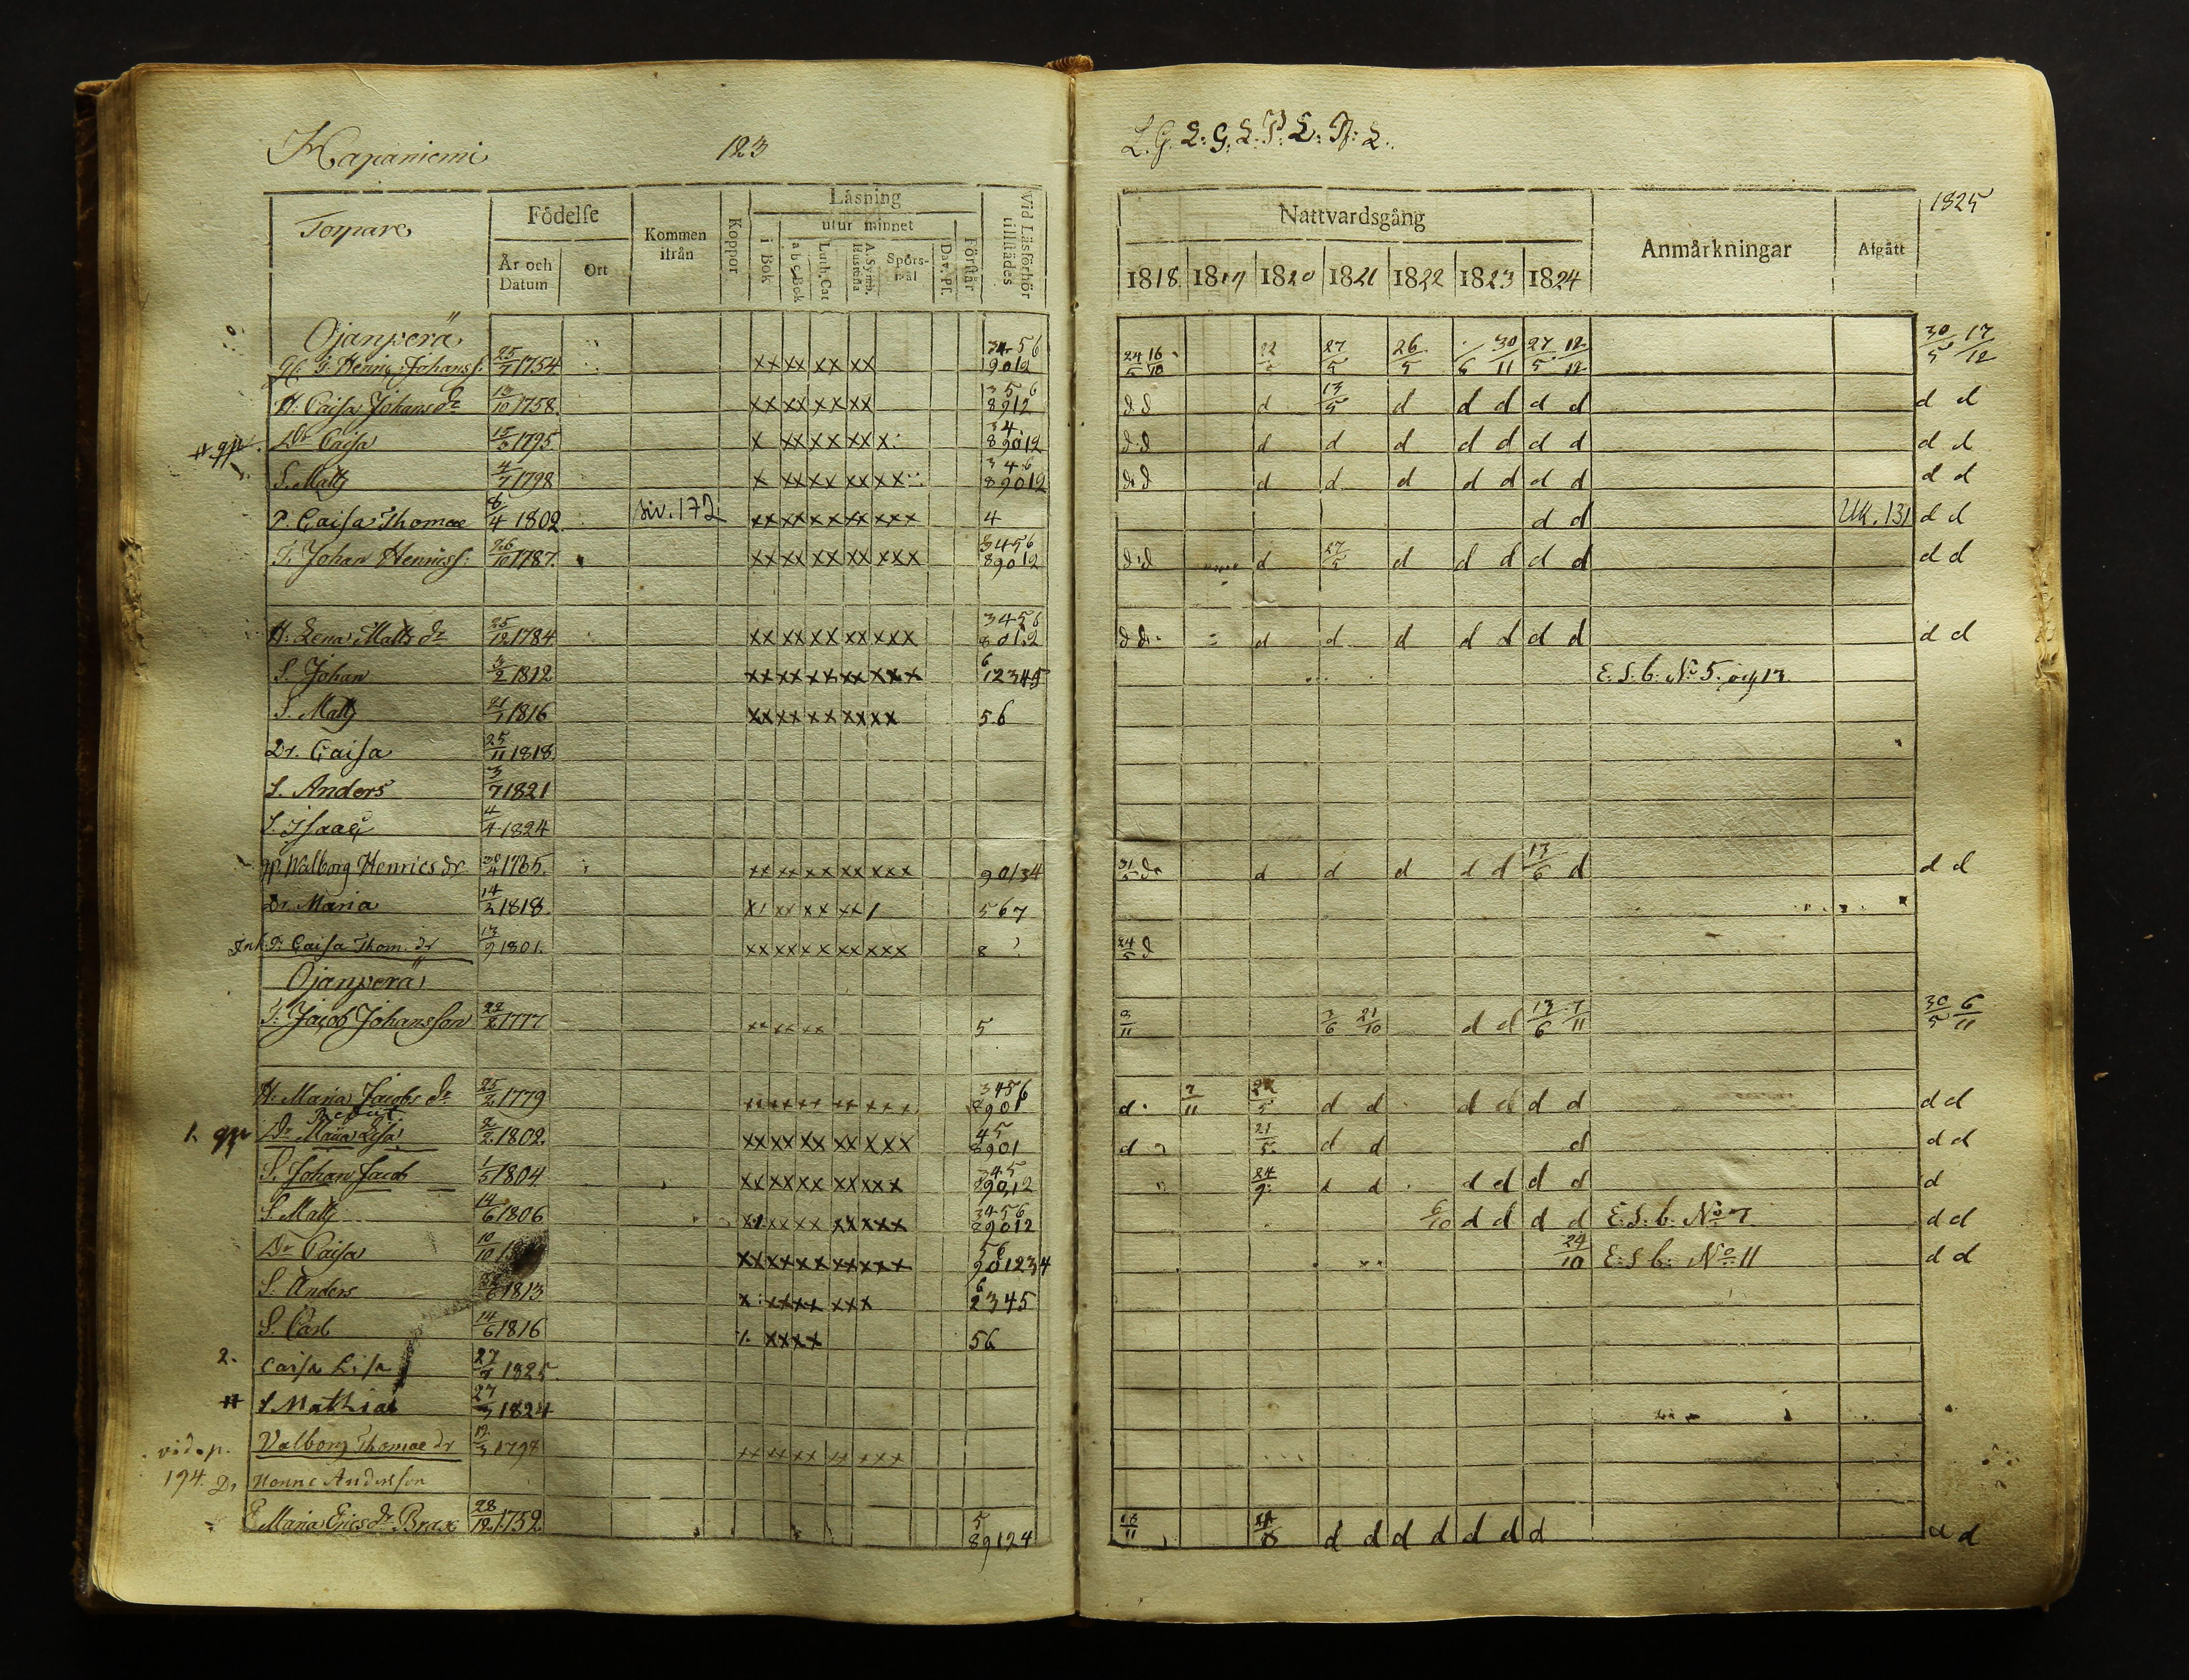 Hapaniemi 123
L. G. L: G. L. P. L: N: L.
Torpare
Födelse
År och Datum
Ort
Kommen ifrån
Koppor
Läsning
i Bok
utur minnet
a b c Bok
Luth. Cat
A. Symb. Hustafla
Spörs-mål
Dav. Psl.
Förstår
Vid Läsförhör tillstädes
Nattvardsgång
1818 1819 1820 1821 1822 1823 1824
Anmärkningar
Afgått
1825
Ojanperä
G: Henric Johanss. 25/7 1754 xx xx xx xx 3456 9012 24/5 16/10 22/5 27/5 26/5 30/11 27/5 12/12 30/5 17/12
H: Caisa Johans dr 13/10 1758 xx xx xx xx 356 8912 d d d 13/5 d d d d d d d
Dr Caisa 15/3 1795 x xx xx xx x 34 89012 d d d d d d d d d d d
S. Matts 4/7 1798 x xx xx xx xx 346 89012 d d d d d d d d d d d
P. Caisa Thomae 6/4 1802 siv. 172 xx xx xx xx xxx 4 d d Uk. 131 d d
T. Johan Henricss: 26/10 1787 xx xx xx xx xxx 3456 89012 d d d 27/5 d d d d d d d
H: Lena Matts dr 25/12 1784 xx xx xx xx xxx 3456 8012 d d d d d d d d d d d
S. Johan 3/2 1812 xx xx xx xx xxx 6 12345 E. S. b. No 5. och 13
S. Matts 21/1 1816 xx xx xx xx xx 56
Dr. Caisa 25/11 1818
S. Anders 3/7 1821
S. Isaac 4/4 1824
gp. Walborg Henrics dr 30/4 1765 xx xx xx xx xxx 90134 31/5 d d d d d d 13/6 d d d
Dr. Maria 14/3 1818 x1 xx xx xx 1 567
Inh. P: Caisa Thom. dr 13/9 1801. xx xx xx xx xxx 8 24/5 d
Ojanperä
T: Jacob Johansson 22/2 1777 xx xx xx 5 21/10 d d 13/6 7/11 30/5 6/11
H: Maria Jacobs dr 25/2 1779 xx xx xx xx xxx 3456 8901 d 7/11 22/5 d d d d d d d d
1. gp Dr Maria Lisa 2/2 1802. xx xx xx xx xxx 45 8901 d 21/5 d d d d d
S. Johan Jacob 1/5 1804 xx xx xx xx xxx 345 89012 24/9 d d d d d d d
S. Matts 14/6 1806 x1 xx xx xx xxx 3456 89012 6/10 d d d d E. S. b. No 7 d d
Dr Caisa 10/10 xx xx xx xx xxx 56 901234 24/10 E: S b: No 11 d d
S. Anders 1813 x xx xx xxx 6 2345
S. Carl 14/6 1816 1. xx xx 56
2. Caisa Lisa 27/7 1825
S. Mathias 27/3 1824
vid. p. 194. Valborg Thomae dr 12/3 1798 xx xx xx xx xxx
Dr Nonne Andersson
E Maria Erics dr Brax 28/12 1752 5 89124 d d d d d d d d d